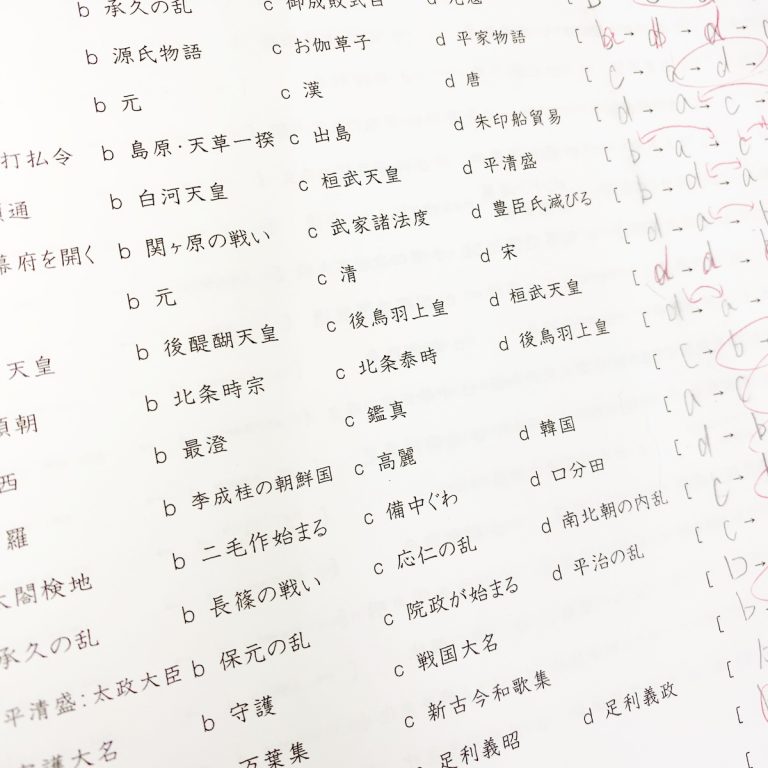 b 承久の乱 c 御成敗式目
b 源氏物語 c お伽草子 d 平家物語 [
b 元 c 漢 d 唐 [ c → a → d →
打払令 b 島原・天草一揆 c 出島 d 朱印船貿易 [ d → a → c →
通 b 白河天皇 c 桓武天皇 d 平清盛 [ b → a → c
幕府を開く b 関ヶ原の戦い c 武家諸法度 d 豊臣氏滅びる [ b → d → a
b 元 c 清 d 宋 [ d → a → b
天皇 b 後醍醐天皇 c 後鳥羽上皇 d 桓武天皇 [ d → d →
頼朝 b 北条時宗 c 北条泰時 d 後鳥羽上皇 [ d → a →
西 b 最澄 c 鑑真 [ c → b →
羅 b 李成桂の朝鮮国 c 高麗 d 韓国 [ a → c
太閤検地 b 二毛作始まる c 備中ぐわ d 口分田 [ d → b
承久の乱 b 長篠の戦い c 応仁の乱 d 南北朝の内乱 [ c →
平清盛：太政大臣 b 保元の乱 c 院政が始まる d 平治の乱 [ c →
守護大名 b 守護 c 戦国大名 [ b →
万葉集 c 新古今和歌集 [ b →
足利義昭 d 足利義政 [